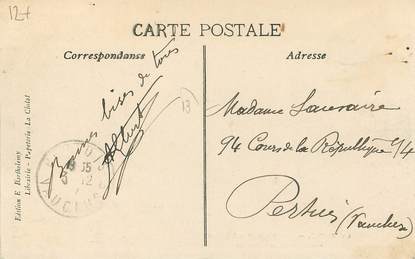 12+
CARTE POSTALE
Correspondance
Adresse
Bonnes bises de tous
Albert
13
Madame Sauvaire
94 Cours de la République 94
Pertuis
(Vaucluse)
Edition E Barthelemy
Librairie - Papeterie - La Ciotat